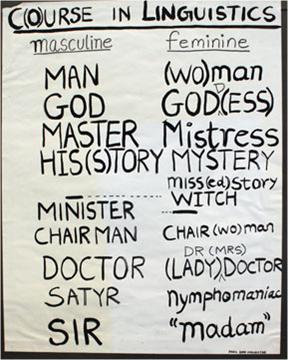 C(O)URSE IN LINGUISTICS
masculine feminine
MAN (wo)man
GOD GOD(ESS)
MASTER Mistress
HIS(S)TORY MYSTERY
miss(ed)story
MINISTER WITCH
CHAIRMAN CHAIR(wo)man
DR (MRS)
DOCTOR (LADY)DOCTOR
SATYR nymphomaniac
SIR "madam"